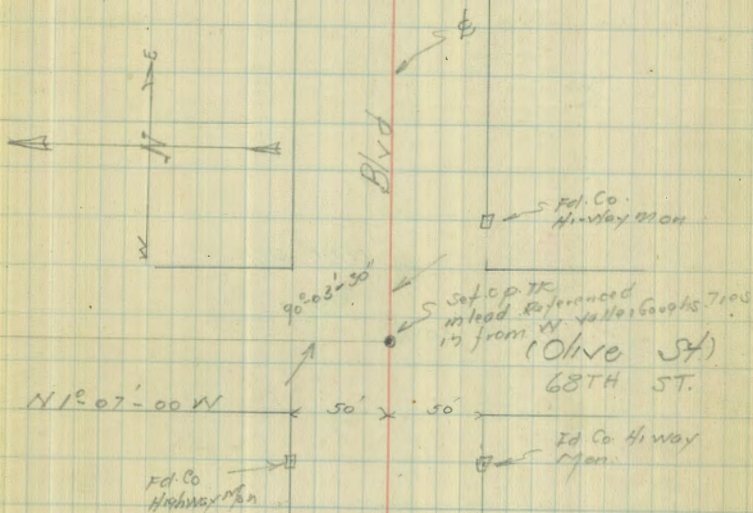 ℄
E
N
W
Blvd
Fd. Co.
Hi-way mon
90°-03'-30"
Set c.p. TK
in lead Referenced
in from W.
(Olive St)
68TH ST.
N 1°-07'-00 W
50' 50'
Fd. Co
Highway Mon
Fd. Co. Hi way
Mon.